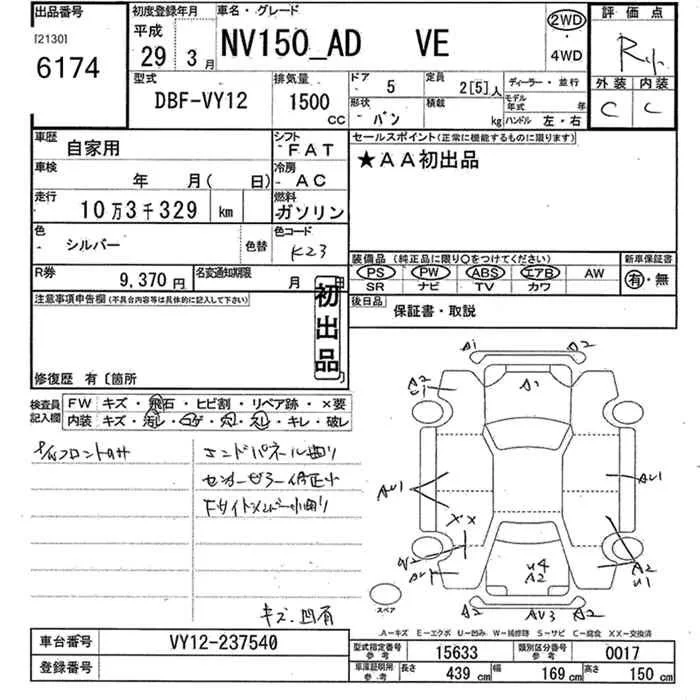 出品番号
[2130]
6174
初度登録年月
平成
29 3月
車名・グレード
NV150_AD VE
2WD
・
4WD
評価点
R
外装 内装
C C
型式
DBF-VY12
排気量
1500
CC
ドア 5
定員 2[5]人
ディーラー・並行
形状 - バン
積載 kg
モデル年式 年
ハンドル 左・右
車歴 自家用
シフト
- FAT
車検 年 月( 日)
冷房
- AC
走行 10万3千329 km
燃料
ガソリン
色
- シルバー
色替
色コード
K23
R券 9,370円
名変通知期限 月 日
セールスポイント(正常に機能するものに限ります)
★AA初出品
装備品(純正品に限り○をつけてください)
PS PW ABS エアB AW
SR ナビ TV カワ
新車保証書
有・無
後日品
保証書・取説
注意事項申告欄(不具合内容等は具体的に記入して下さい)
初出品
修復歴 有〔箇所
検査員記入欄
FW キズ・飛石・ヒビ割・リペア跡・×要
内装 キズ・汚レ・コゲ・穴・スレ・キレ・破レ
エンドパネル曲り
キズ・凹有
A1 A2
A2 A1
AU1 AU1
XX
W2
U4
A2
A2
U1
A2 AU3 A2
スペア
A−キズ E−エクボ U−凹み W−補修跡 S−サビ C−腐食 XX−交換済
車台番号 VY12-237540
登録番号
型式指定番号 参考 15633
類別区分番号 参考 0017
車庫証明用 参考 長さ 439 cm 幅 169 cm 高さ 150 cm